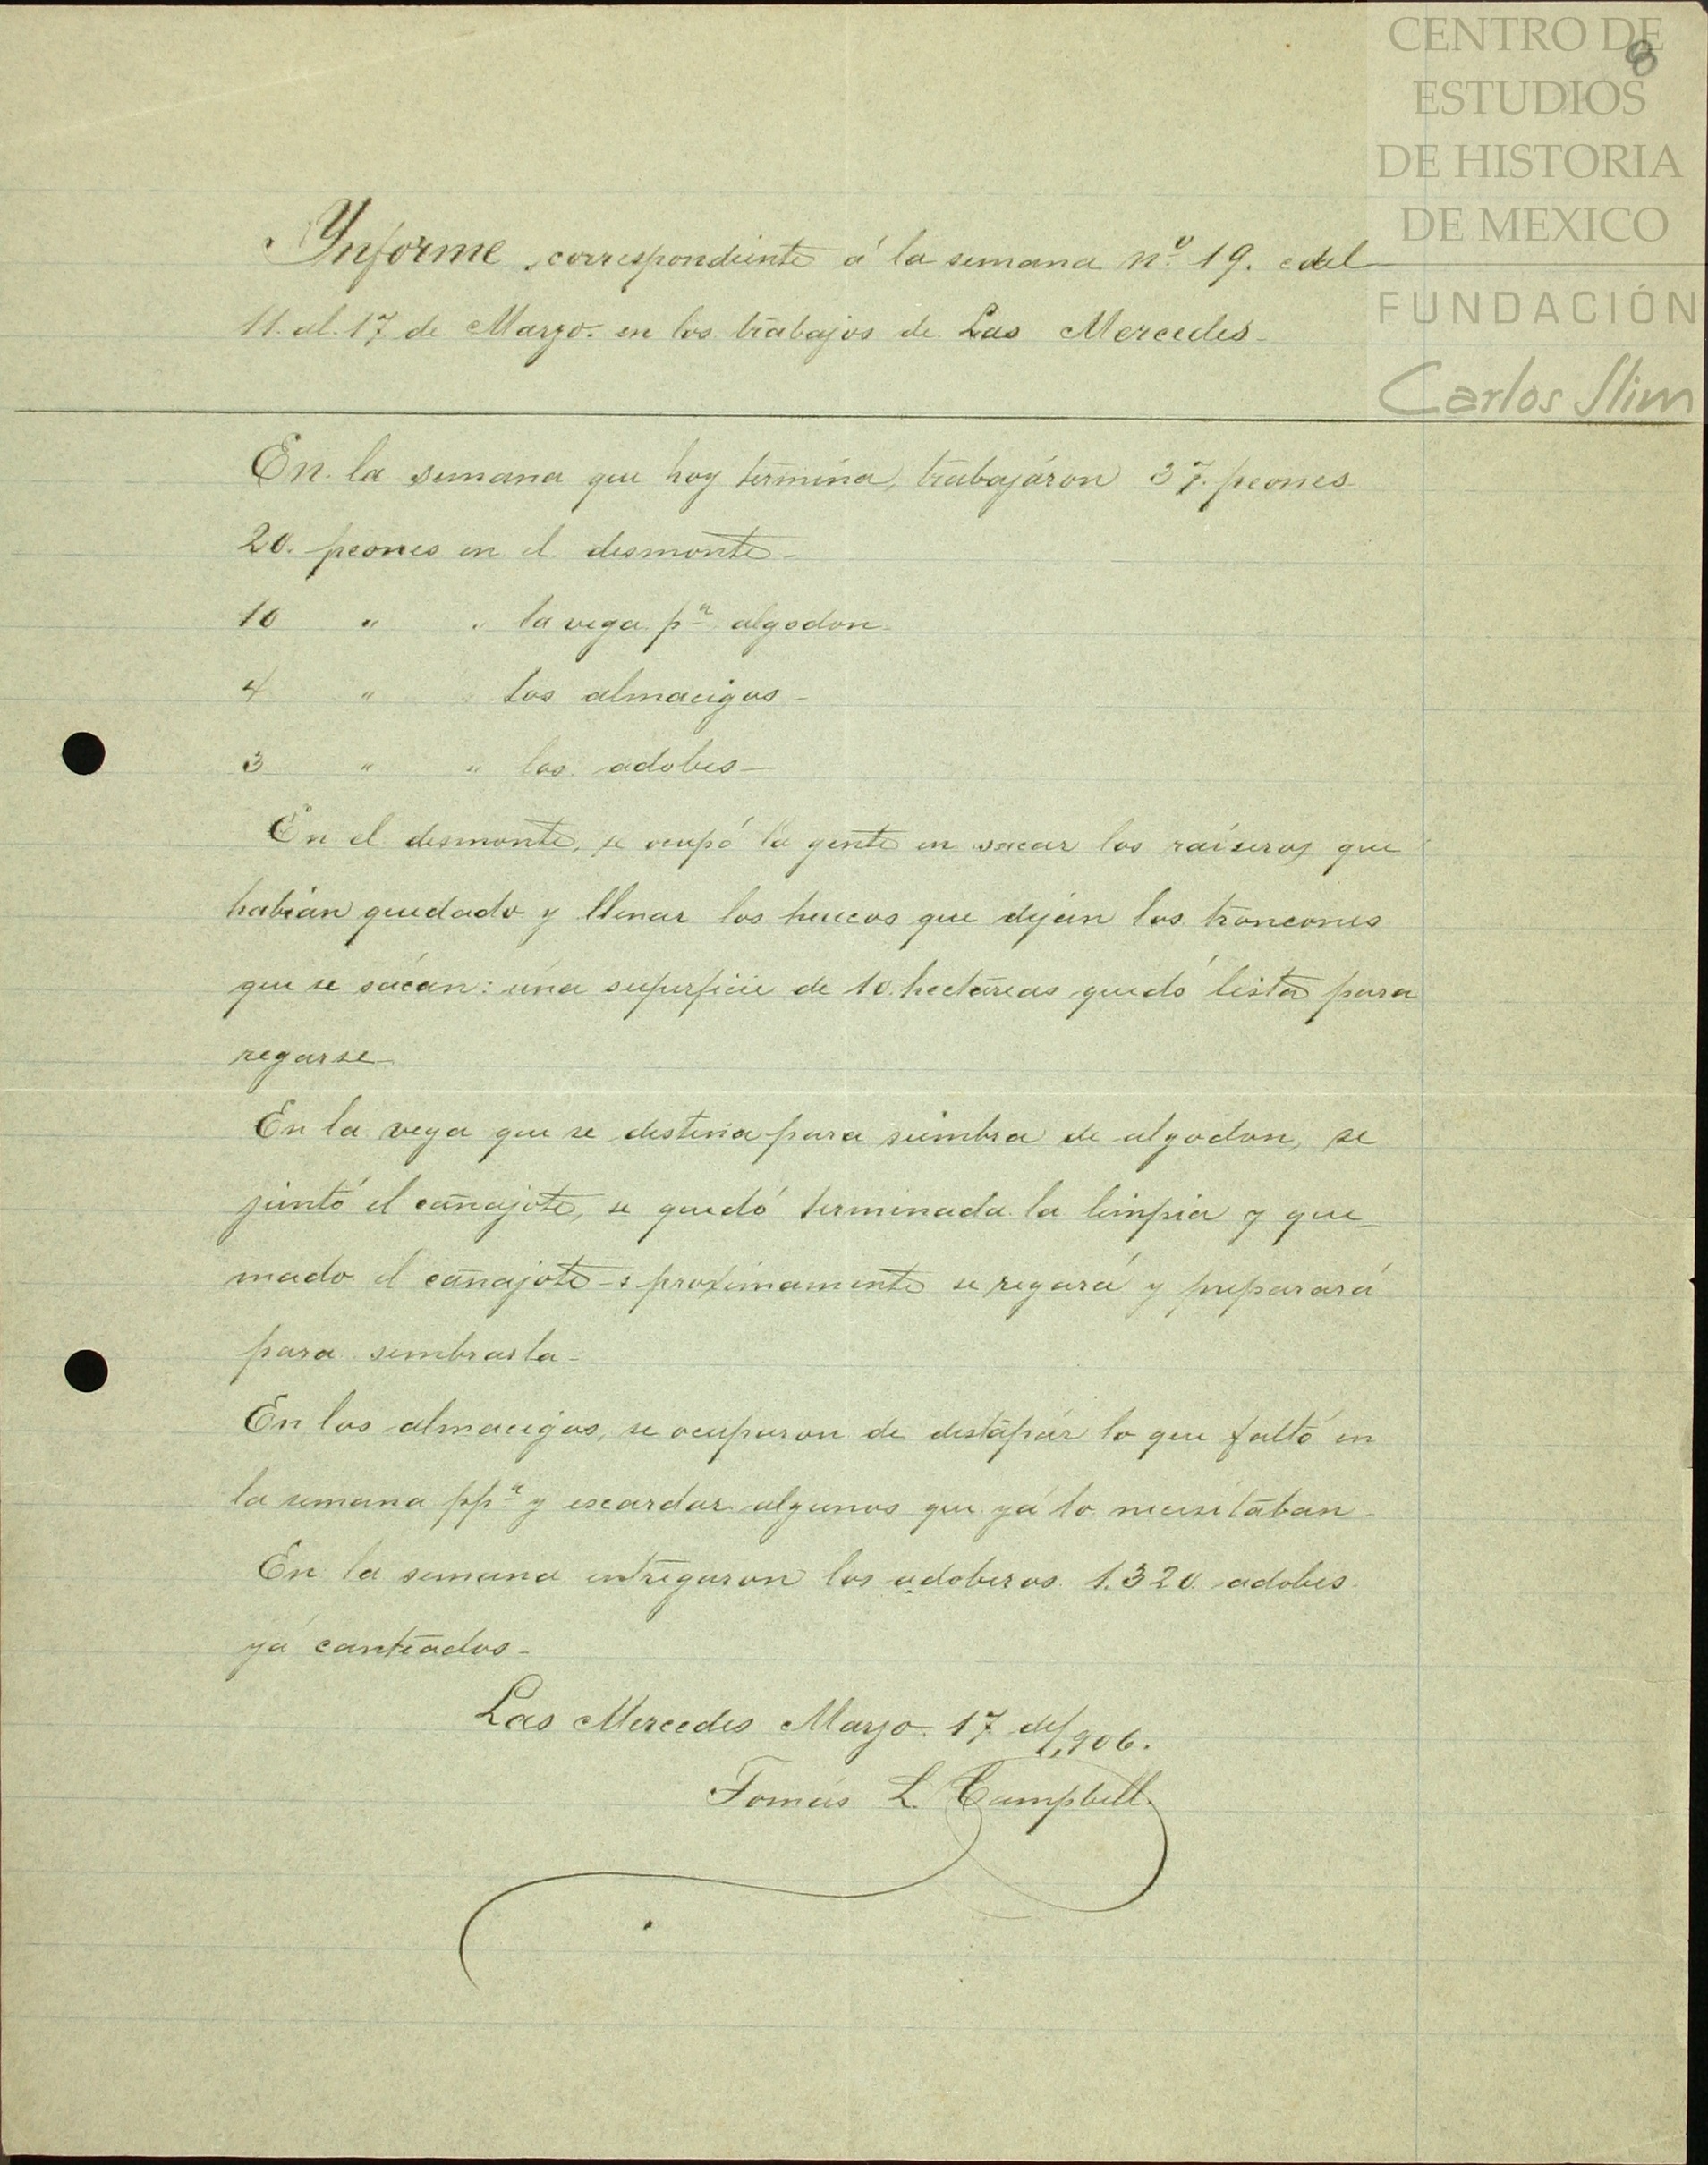 CENTRO DE
ESTUDIOS
DE HISTORIA
DE MEXICO
FUNDACIÓN
Carlos Slim
8
Ynforme correspondiente á la semana nº 19. del
11. al. 17 de Marzo. en los trabajos de Las Mercedes-
En la semana que hoy termina, trabajáron 37. peones
20. peones en el desmonte-
10 " " la vega pª algodon-
4 " " los almacigos-
3 " " los adobes-
En el desmonte, se ocupó la gente en sacar los raiseros que
habian quedado y llenar los huecos que dejan los troncones
que se sácan: una superficie de 10. hectáreas quedó lista para
regarse-
En la vega que se destina para siembra de algodon, se
juntó el cañajote, se quedó terminada la limpia y que-
mado el cañajote-: proximamente se regará y preparará
para sembrarla-
En los almacigos, se ocuparon de destapár lo que faltó en
la semana ppª y escardar algunos que yá lo necesitaban-
En la semana entregaron los adoberos 1.320. adobes
yá canteados-
Las Mercedes Marzo. 17 de/906.
Tomás L. Campbell.